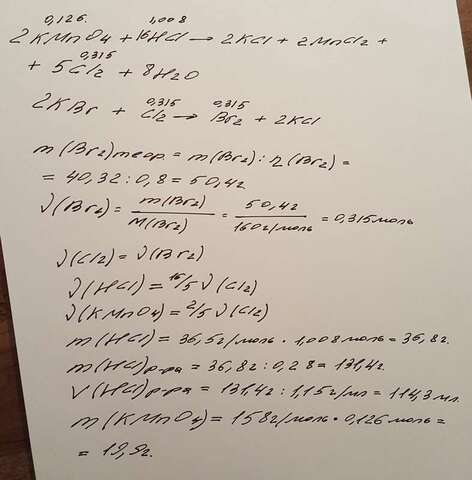 0,126. 1,008
2KMnO4 + 16HCl → 2KCl + 2MnCl2 +
0,315
+ 5Cl2 + 8H2O
0,315 0,315
2KBr + Cl2 → Br2 + 2KCl
m(Br2)теор. = m(Br2) : η(Br2) =
= 40,32 : 0,8 = 50,4г
ν(Br2) = m(Br2)/M(Br2) = 50,4г/160г/моль = 0,315моль
ν(Cl2) = ν(Br2)
ν(HCl) = 16/5 ν(Cl2)
ν(KMnO4) = 2/5 ν(Cl2)
m(HCl) = 36,5г/моль · 1,008моль = 36,8г.
m(HCl)р-ра = 36,8г : 0,28 = 131,4г
V(HCl)р-ра = 131,4г : 1,15г/мл = 114,3мл.
m(KMnO4) = 158г/моль · 0,126моль =
= 19,9г.